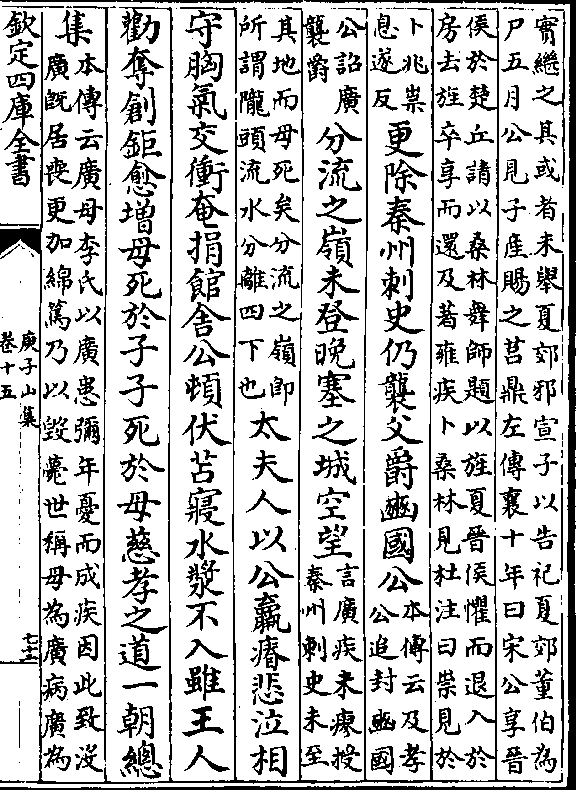 實繼之其或者未舉夏郊邪宣子以告祀夏郊董伯為
尸五月公見子產賜之莒鼎左傳襄十年曰宋公享晉
侯於楚丘請以桑林舞師題以旌夏晉侯懼而退入於
房去旌卒享而還及著雍疾卜桑林見杜注曰祟見於
卜兆祟
息遂反
更除秦州刺史仍襲父爵豳國公
本傳云及孝
公追封豳國
公詔廣
襲爵
分流之嶺未登晚塞之城空望
言廣疾未瘳授
秦州刺史未至
其地而母死矣分流之嶺即
所謂隴頭流水分離四下也
太夫人以公羸瘠悲泣相
守胸氣交衝奄捐館舍公頓伏苫寢水漿不入雖王人
勸奪創鉅愈增母死於子子死於母慈孝之道一朝總
集
本傳云廣母李氏以廣患彌年憂而成疾因此致沒
廣既居喪更加綿篤乃以毀薨世稱母為廣病廣為
欽定四庫全書
庾子山集
卷十五
七十二